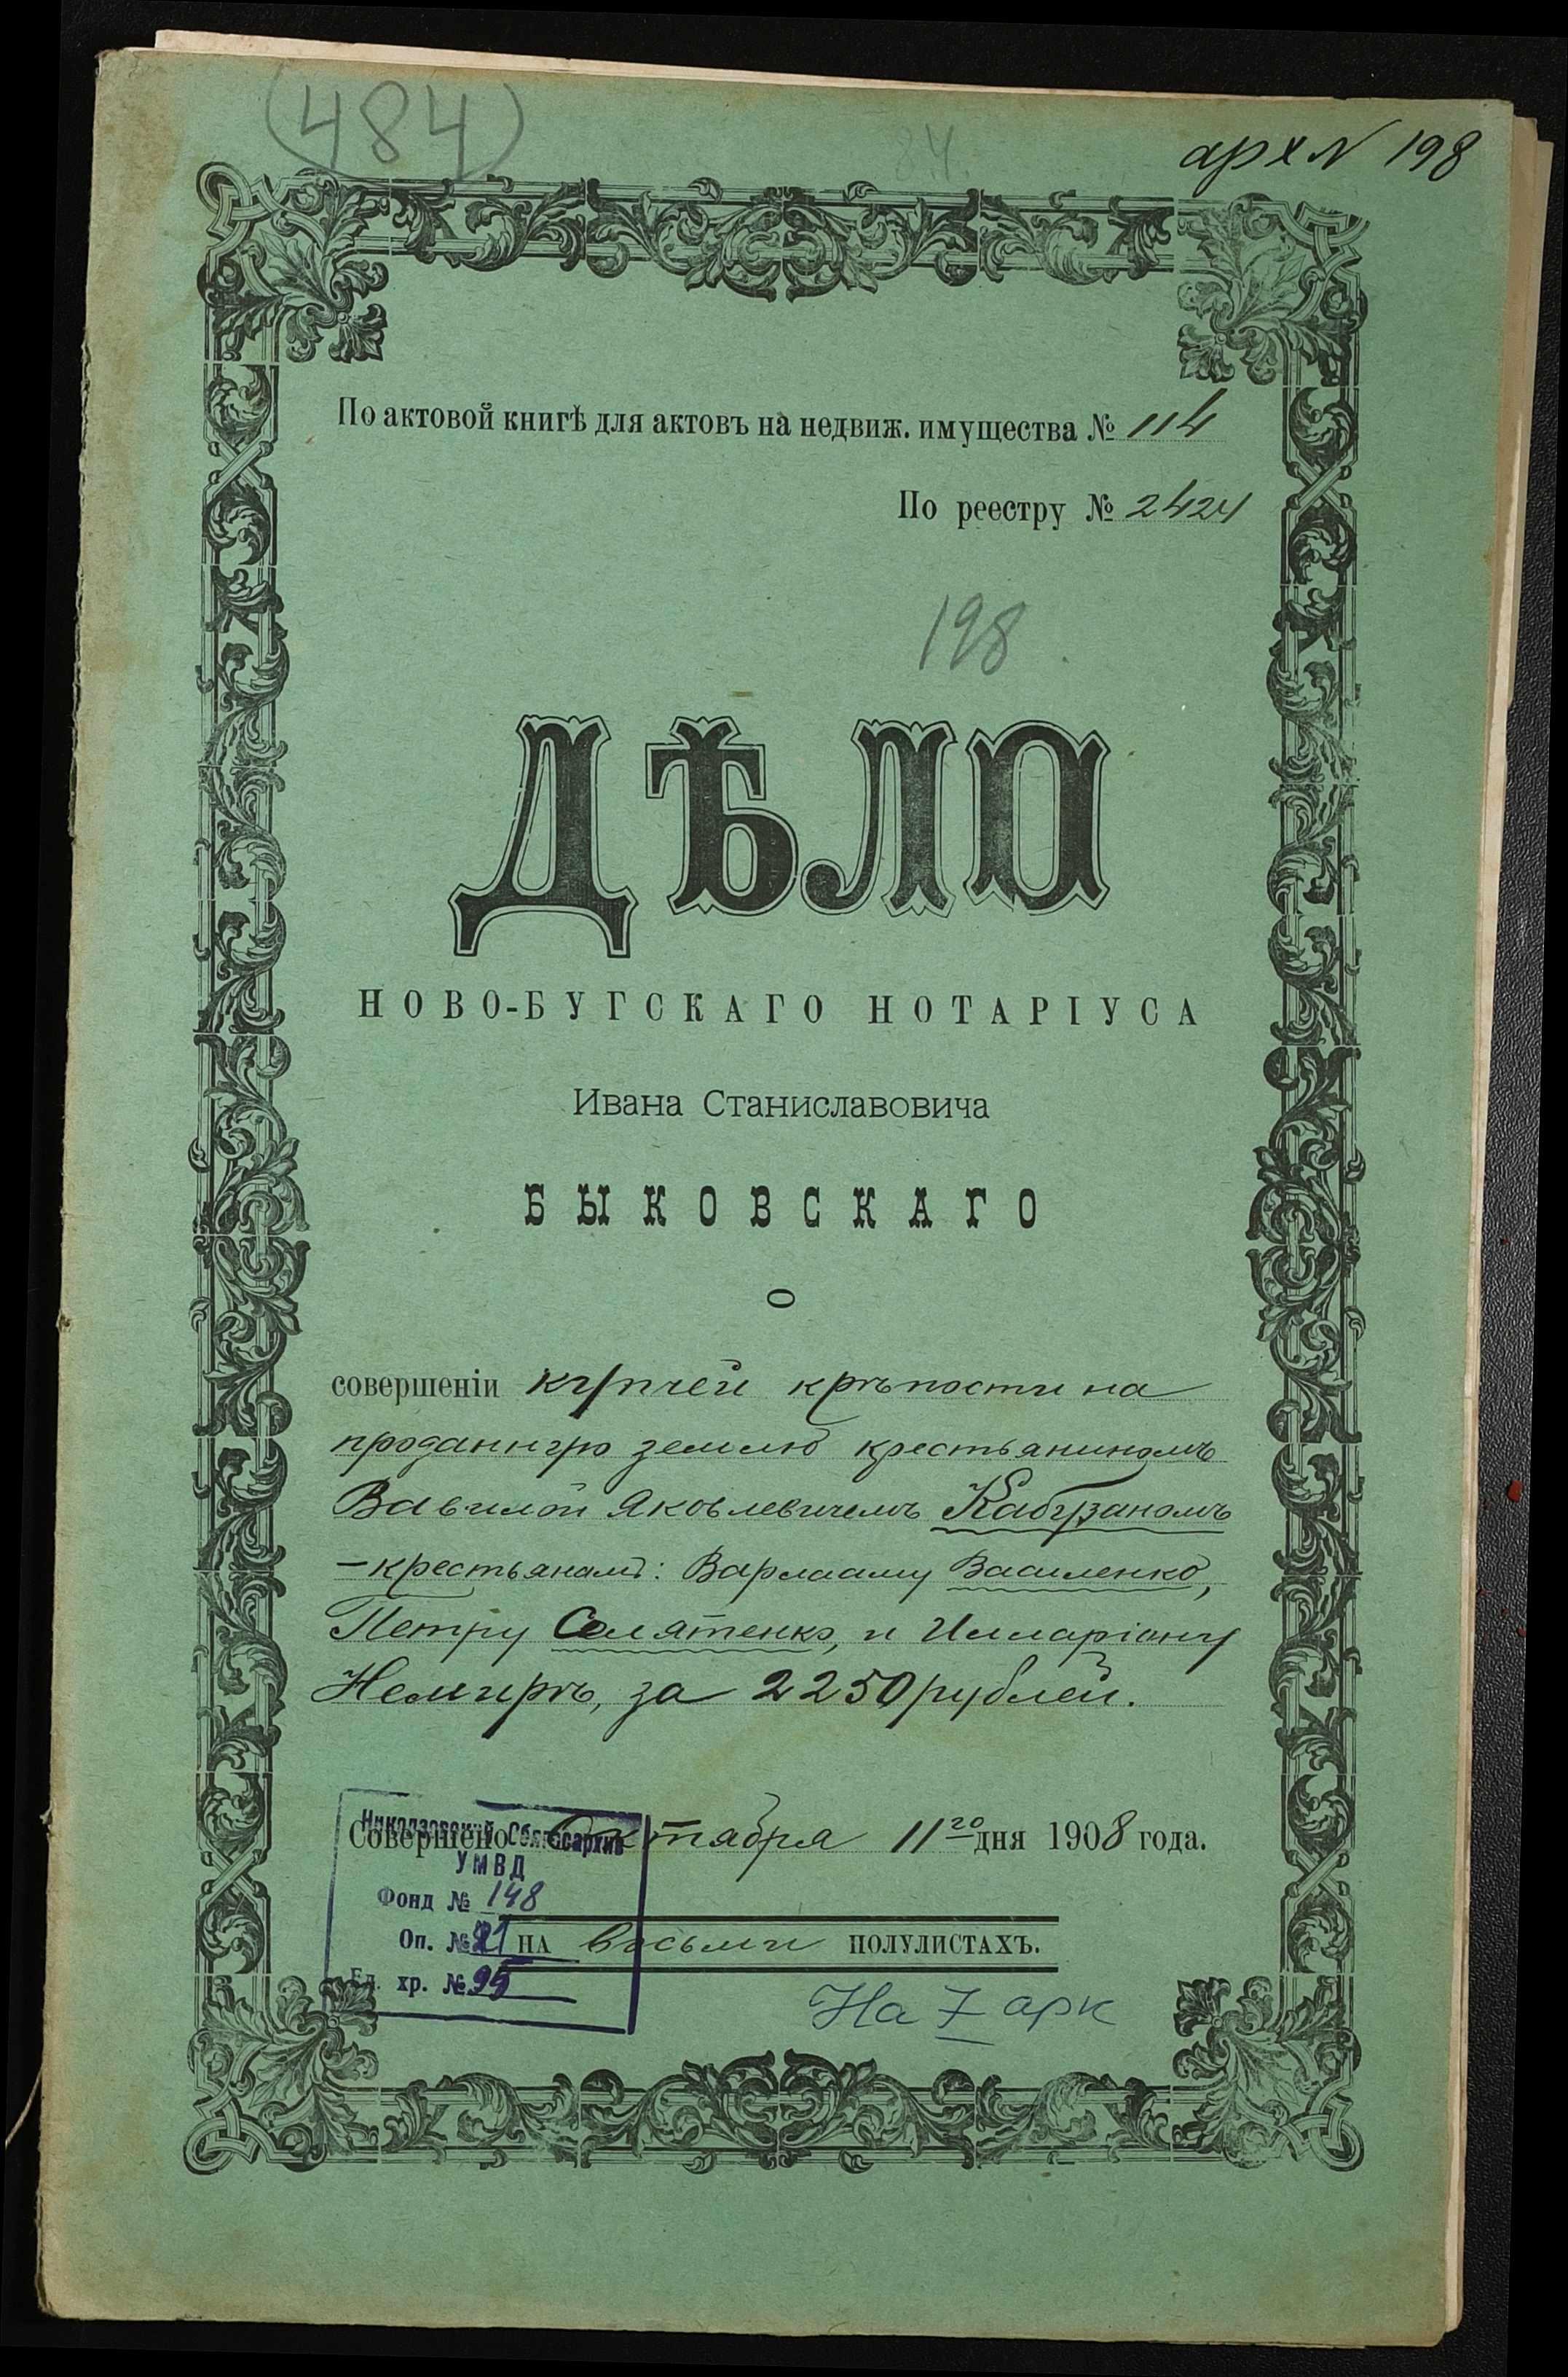 (484)
арх № 198
По актовой книгѣ для актовъ на недвиж. имущества № 114
По реестру № 2424
198
ДѢЛО
НОВО-БУГСКАГО НОТАРІУСА
Ивана Станиславовича
БЫКОВСКАГО
О
совершеніи купчей крѣпости на
проданную землю крестьяниномъ
Вавилой Яковлевичемъ Кабузаномъ
—крестьянамъ: Варлааму Василенко,
Петру Солятенко, и Илларіону
Немирѣ, за 2250 рублей.
Совершено Октября 11го дня 1908 года.
Николаевский Облгосархив
УМВД
Фонд № 148
Оп. № 21
НА восьми ПОЛУЛИСТАХЪ.
Ед. хр. № 95
На 7 арк